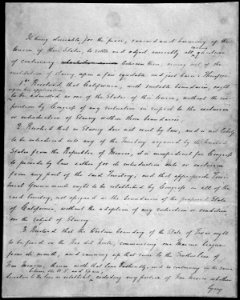 It being desirable, for the peace, concord and harmony of the
Union of these States, to settle and adjust amicably all questions
of controversy between them, arising out of the
institution of slavery, upon a fair equitable and just basis: Therefore
1. Resolved that California, with suitable boundaries, ought
upon her application
to be admitted as one of the States of this Union, without the im-
position by Congress of any restriction in respect to the exclusion
or introduction of slavery within those boundaries.
2. Resolved that as slavery does not exist by law, and is not likely
to be introduced into any of the territory acquired by the United
States from the Republic of Mexico, it is inexpedient for Congress
to provide by law either for its introduction into or exclusion
from any part of the said Territory; and that appropriate Terri-
torial Governments ought to be established by Congress in all of the
said territory, not assigned as the boundaries of the proposed State
of California, without the adoption of any restriction or condition
on the subject of slavery.
3. Resolved that the Western boundary of the State of Texas ought
to be fixed on the Rio del Norte, commencing one marine league
from its mouth, and running up that river to the Southern line of
New Mexico; thence with that line Eastwardly, and so continuing in the same
direction to the line as established between the U.S. and Spain, excluding any portion of New Mexico, whether
lying